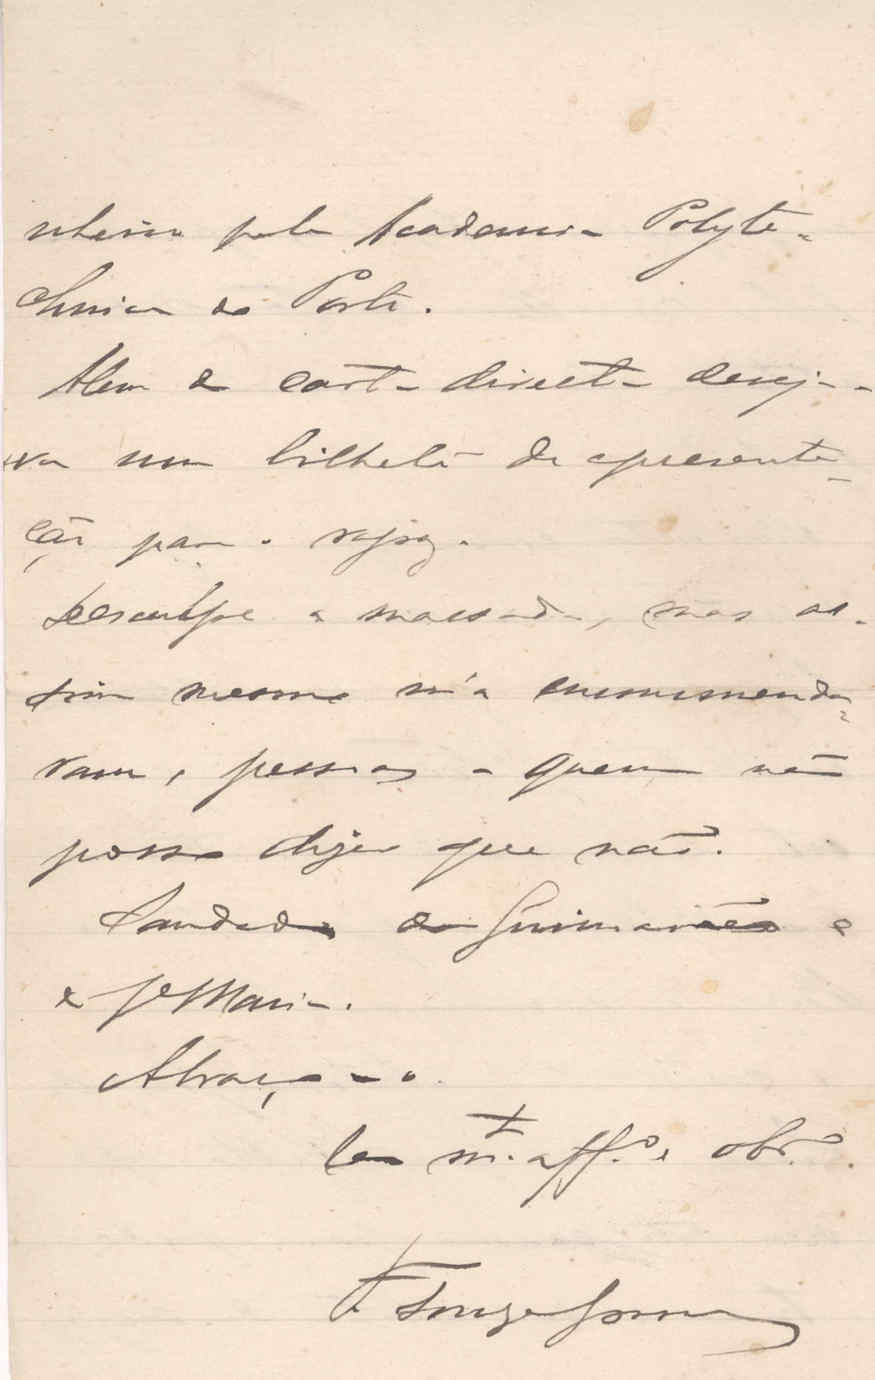 nheiro pela Academia Polyte-
chnica do Porto.
Alem da carta directa deseja-
va um bilhete de apresenta-
ção para o rapaz.
Desculpe a massada, mas as-
sim mesmo m'a encommenda-
ram, pessoas a quem não
posso dizer que não.
Saudades do Guimarães e
e Je Maria.
Abraça-o
m.to aff.o e obr.o